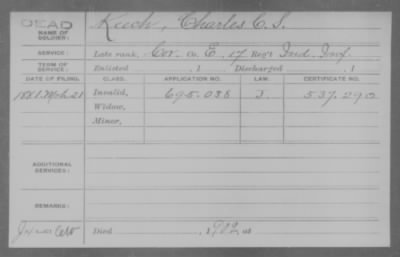 DEAD
NAME OF SOLDIER: Kuch, Charles C. S.
SERVICE: Late rank, Cor. Co. E, 17 Reg't Ind. Inf.
TERM OF SERVICE: Enlisted , 1 Discharged , 1
DATE OF FILING. CLASS. APPLICATION NO. LAW. CERTIFICATE NO.
1881 Mch 21 Invalid, 695.088 J. 537.290
Widow,
Minor,
ADDITIONAL SERVICES:
REMARKS:
Died , 1902, at